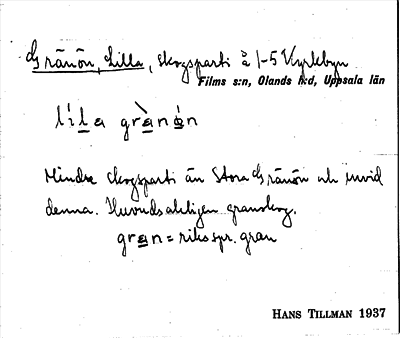 Gränön, Lilla, skogsparti å 1-5 Kyrkbyn
Films s:n, Olands h:d, Uppsala län
lila granön
Mindre skogsparti än Stora Gränön och invid
denna. Huvudsakligen granskog.
gran = riksspr. gran
HANS TILLMAN 1937